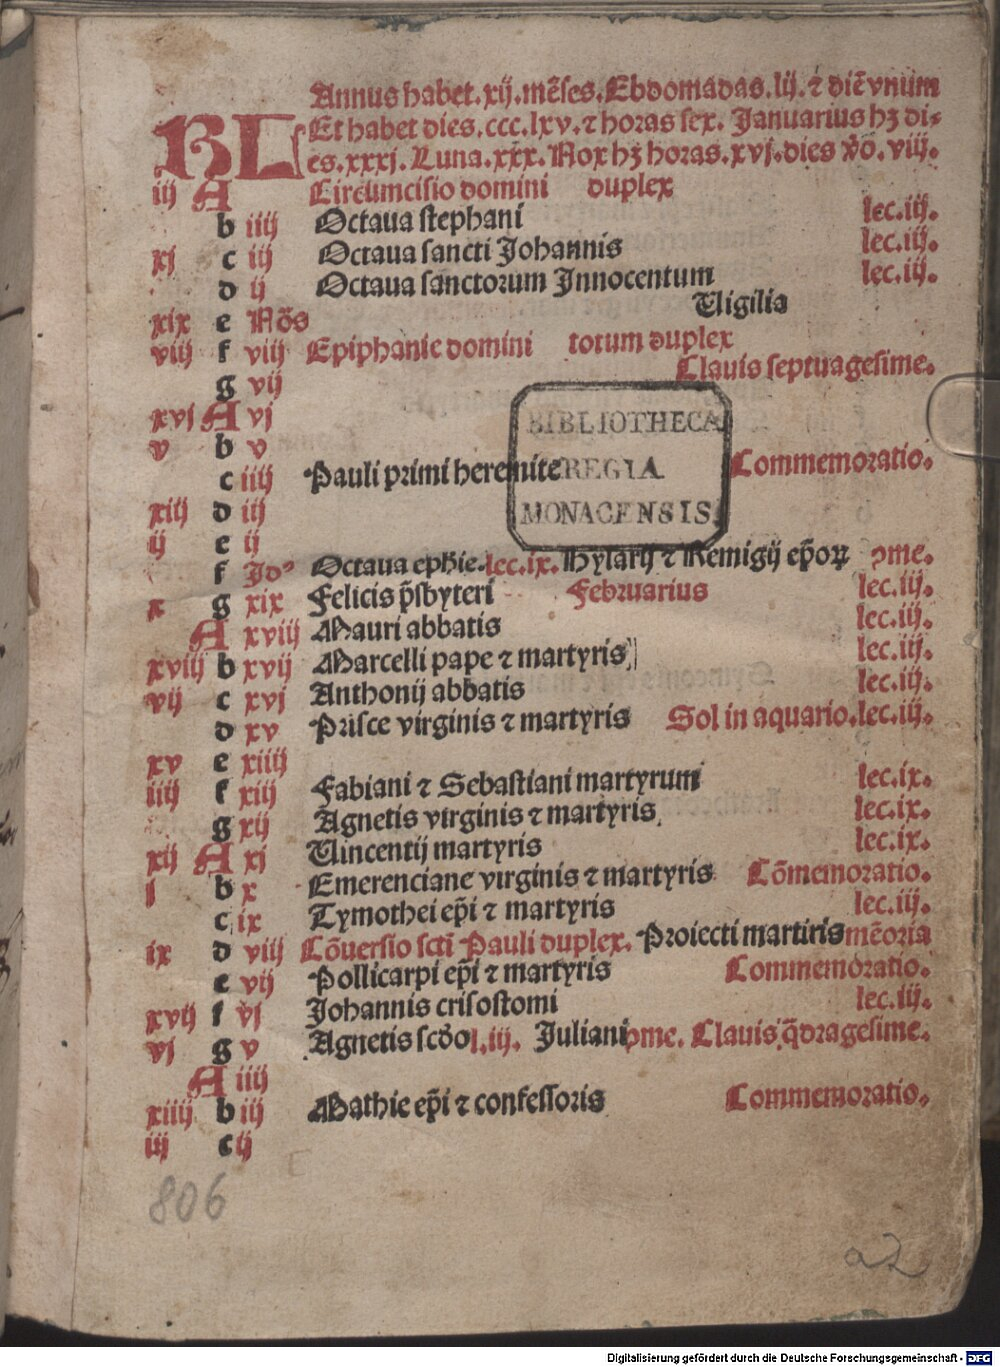 Annus habet .xij. mẽses. Ebdomadas. lij. ⁊ diẽ vnum
KL Et habet dies. ccc. lxv. ⁊ horas sex. Januarius hꝫ di-
es. xxxj. Luna. xxx. Nox hꝫ horas. xvj. dies v̾o. viij.
iij A Circumcisio domini duplex
b iiij Octaua stephani lec. iij.
xj c iij Octaua sancti Johannis lec. iij.
d ij Octaua sanctorum Innocentum lec. iij.
xix e Nõs Uigilia
viij f viij Epiphanie domini totum duplex
g vij Clauis septuagesime.
xvj A vj
v b v
c iiij Pauli primi heremite Commemoratio.
BIBLIOTHECA
REGIA
MONACENSIS.
xiij d iij
ij e ij
f Jdꝰ Octaua ephie. lec. ix. Hylarij ⁊ Remigij ep̃oꝝ ꝯme.
x g xix Felicis p̃sbyteri Februarius lec. iij.
A xviij Mauri abbatis lec. iij.
xviij b xvij Marcelli pape ⁊ martyris lec. iij.
vij c xvj Anthonij abbatis lec. iij.
d xv Prisce virginis ⁊ martyris Sol in aquario. lec. iij.
xv e xiiij
iiij f xiij Fabiani ⁊ Sebastiani martyrum lec. ix.
g xij Agnetis virginis ⁊ martyris lec. ix.
xij A xj Uincentij martyris lec. ix.
j b x Emerenciane virginis ⁊ martyris Cõmemoratio.
c ix Tymothei ep̃i ⁊ martyris lec. iij.
ix d viij Cõuersio sctĩ Pauli duplex. Proiecti martiris mẽoria
e vij Pollicarpi ep̃i ⁊ martyris Commemoratio.
xvij f vj Johannis crisostomi lec. iij.
vj g v Agnetis scdõ l. iij. Juliani ꝯme. Clauis q̃dragesime.
A iiij
xiiij b iij Mathie ep̃i ⁊ confessoris Commemoratio.
iij c ij
806
a2
Digitalisierung gefördert durch die Deutsche Forschungsgemeinschaft - DFG